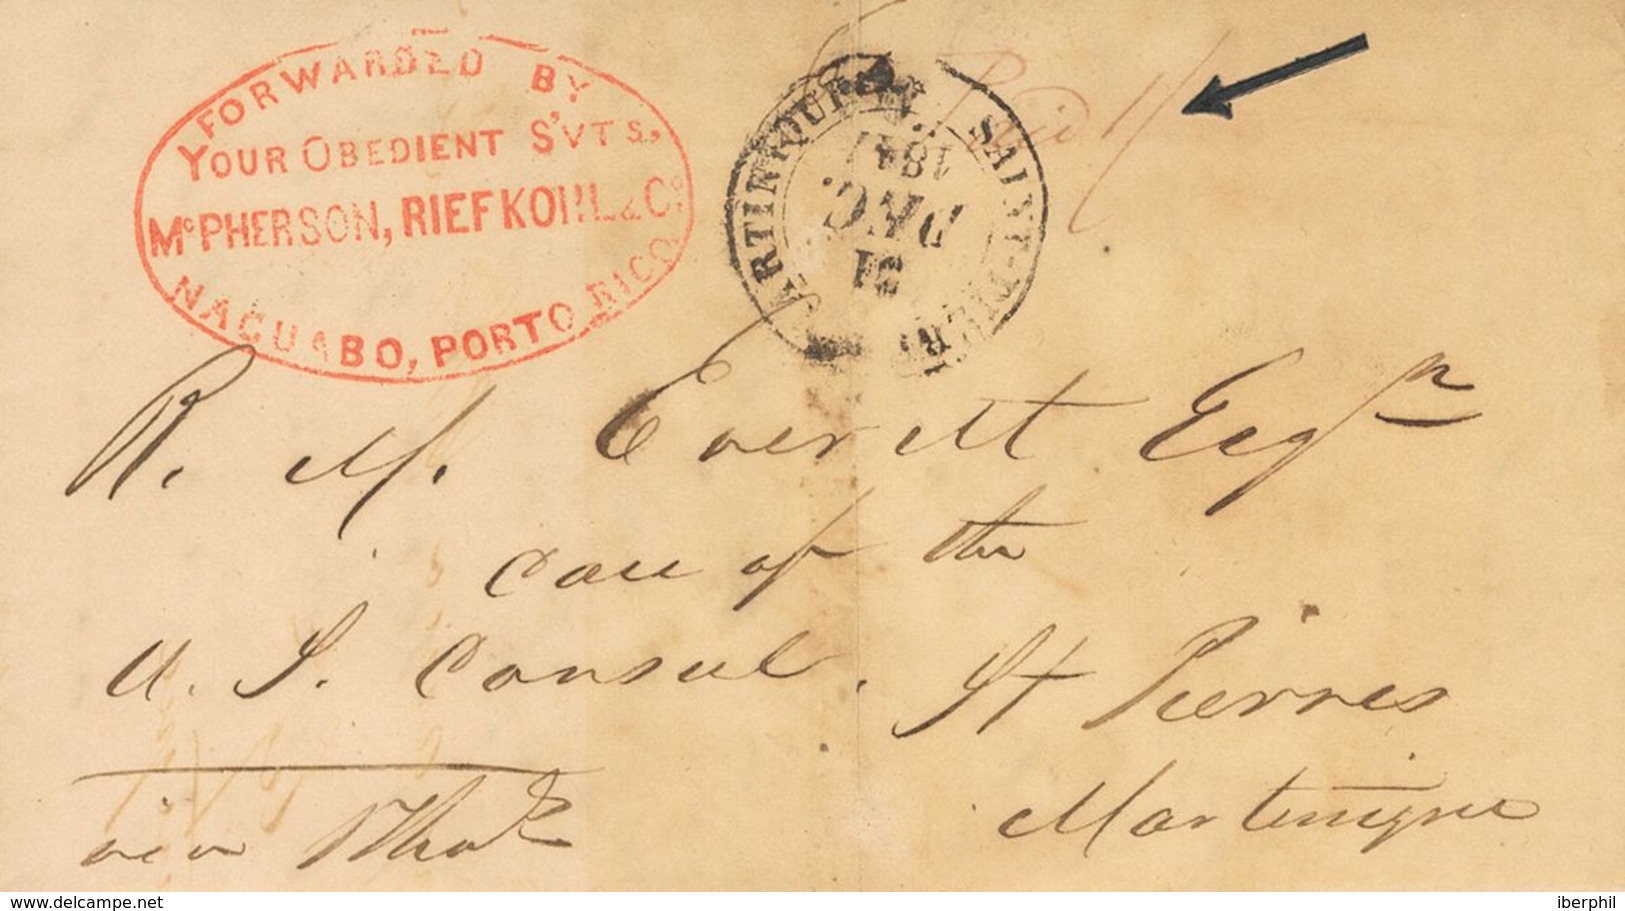 FORWARDED BY
YOUR OBEDIENT S'VTS,
McPHERSON, RIEFKOHL & Co.
NAGUABO, PORTO RICO
MARTINIQUE SAINT-PIERRE
31
DEC.
Paid 1/
R. M. Everett Esqr
care of the
U. S. Consul.
St Pierres
Martinique
via
delcampe.net
iberphil